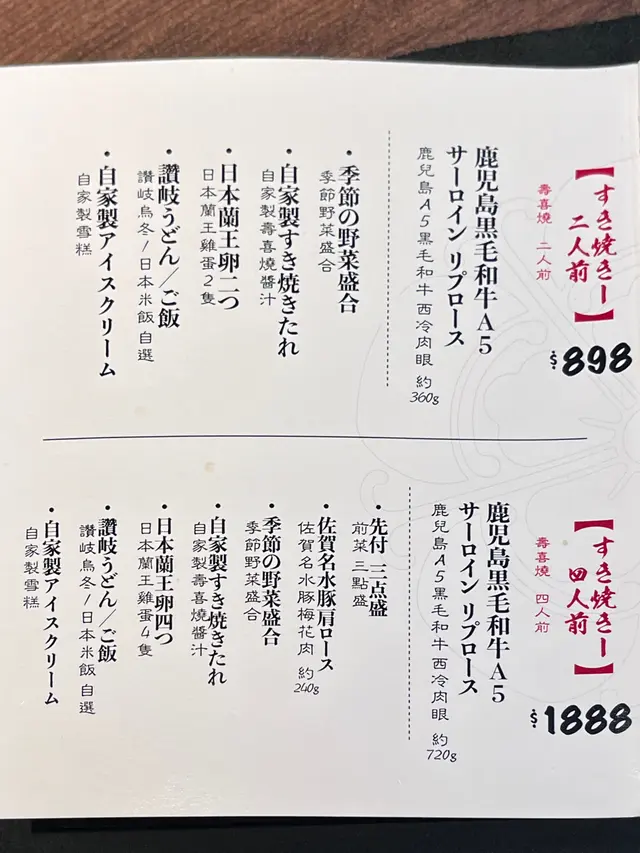 【すき焼きー
二人前】
壽喜燒 二人前
$898
鹿児島黒毛和牛A5
サーロイン リブロース
鹿兒島A5黑毛和牛西冷肉眼 約360g
・季節の野菜盛合
季節野菜盛合
・自家製すき焼きたれ
自家製壽喜燒醬汁
・日本蘭王卵二つ
日本蘭王雞蛋2隻
・讃岐うどん／ご飯
讃岐烏冬/日本米飯 自選
・自家製アイスクリーム
自家製雪糕
【すき焼きー
四人前】
壽喜燒 四人前
$1888
鹿児島黒毛和牛A5
サーロイン リブロース
鹿兒島A5黑毛和牛 西冷肉眼 約720g
・先付 三点盛
前菜三點盛
・佐賀名水豚肩ロース
佐賀名水豚梅花肉 約240g
・季節の野菜盛合
季節野菜盛合
・自家製すき焼きたれ
自家製壽喜燒醬汁
・日本蘭王卵四つ
日本蘭王雞蛋4隻
・讃岐うどん／ご飯
讃岐烏冬/日本米飯 自選
・自家製アイスクリーム
自家製雪糕